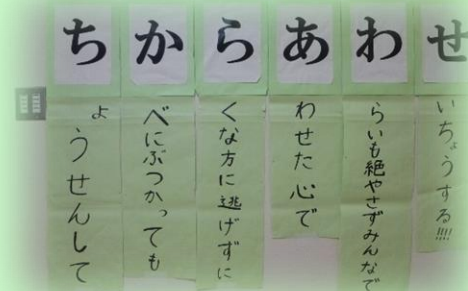 ちょうせんして
かべにぶつかっても
らくな方に逃げずに
あわせた心で
わらいも絶やさずみんなで
せいちょうする!!!!